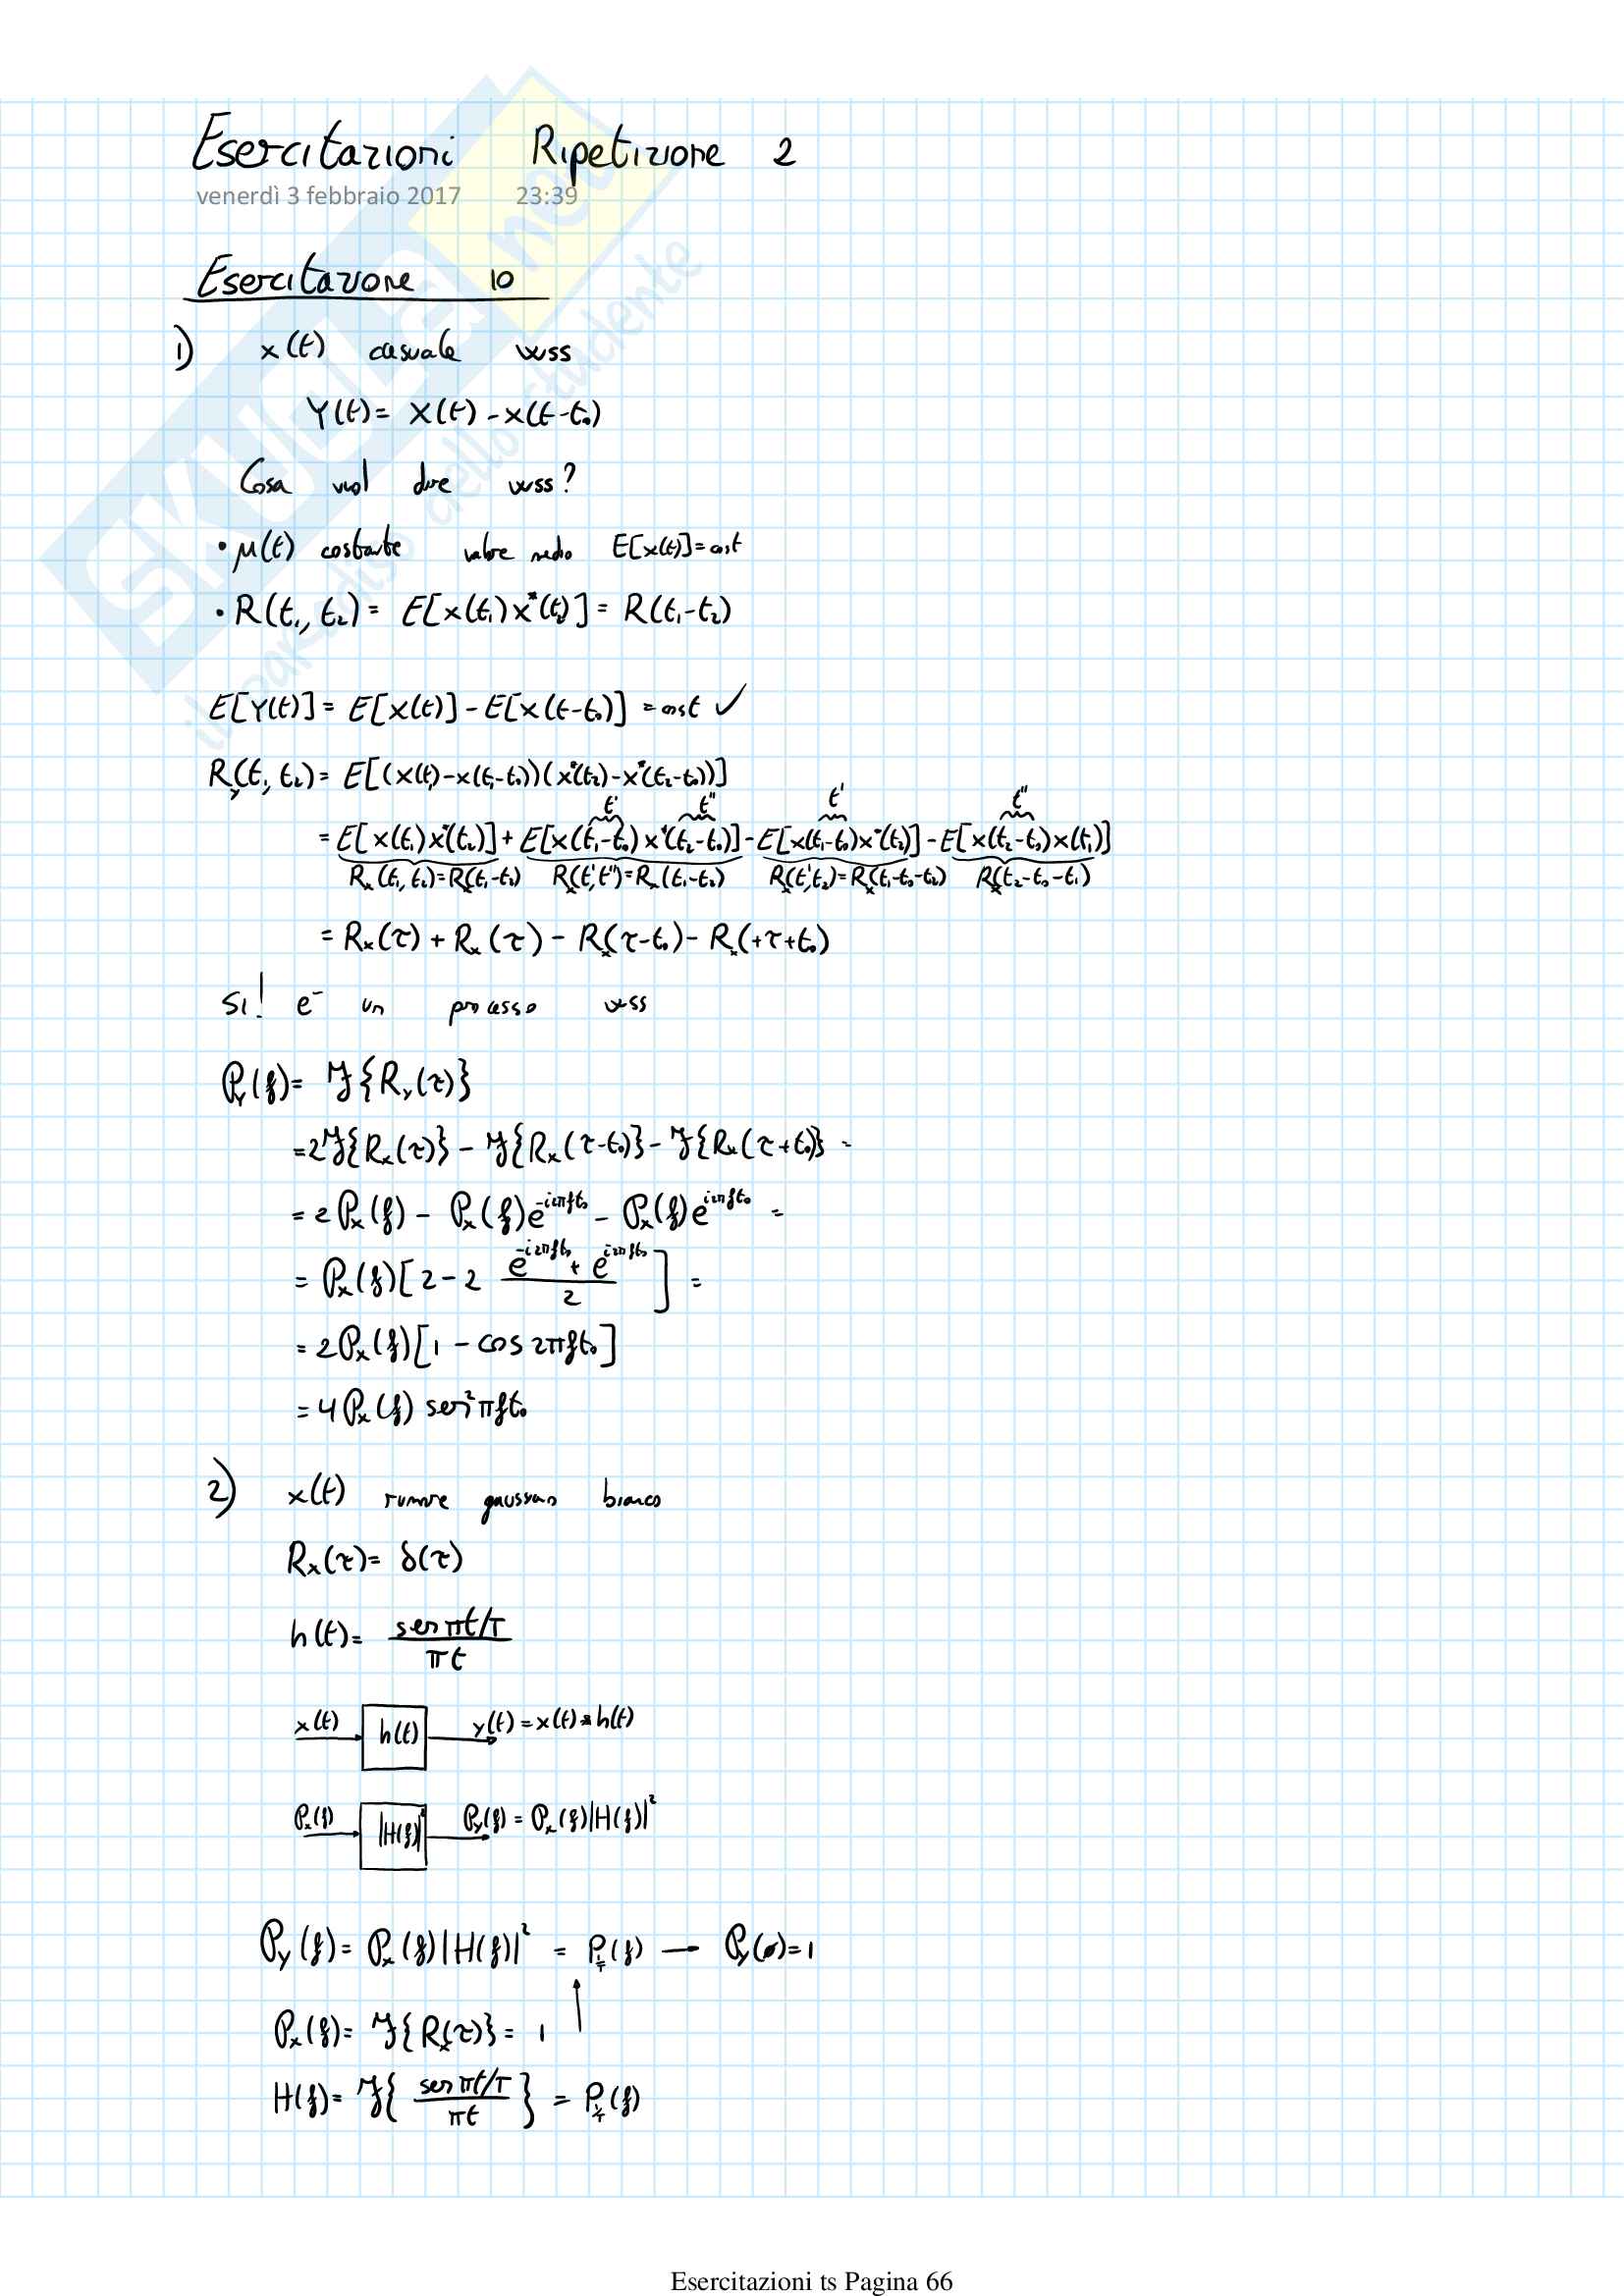 Esercitazioni Ripetizione 2
venerdì 3 febbraio 2017 23:39
Esercitazione 10
1) x(t) casuale wss
Y(t)= X(t) - x(t-t₀)
Cosa vuol dire wss?
• μ(t) costante valore medio E[x(t)]=cost
• R(t₁, t₂)= E[x(t₁)x*(t₂)]= R(t₁-t₂)
E[Y(t)]= E[x(t)] - E[x(t-t₀)] = cost ✓
R_y(t₁, t₂)= E[(x(t₁)-x(t₁-t₀))(x*(t₂)-x*(t₂-t₀))]
t' t'' t' t''
= E[x(t₁)x*(t₂)] + E[x(t₁-t₀)x*(t₂-t₀)] - E[x(t₁-t₀)x*(t₂)] - E[x(t₂-t₀)x(t₁)]
Rₓ(t₁, t₂)=Rₓ(t₁-t₂) Rₓ(t',t'')=Rₓ(t₁-t₂) Rₓ(t',t₂)=Rₓ(t₁-t₀-t₂) Rₓ(t₂-t₀-t₁)
= Rₓ(τ) + Rₓ(τ) - Rₓ(τ-t₀) - Rₓ(+τ+t₀)
SI! e- un processo wss
P_y(f)= F{R_y(τ)}
=2F{Rₓ(τ)} - F{Rₓ(τ-t₀)} - F{Rₓ(τ+t₀)} =
= 2Pₓ(f) - Pₓ(f)e^{-i2πft₀} - Pₓ(f)e^{i2πft₀} =
= Pₓ(f)[2-2 (e^{-i2πft₀} + e^{i2πft₀})/2] =
= 2Pₓ(f)[1 - cos 2πft₀]
= 4Pₓ(f) sen²πft₀
2) x(t) rumore gaussiano bianco
Rₓ(τ)= δ(τ)
h(t)= sen πt/T / πt
x(t) h(t) y(t)=x(t)*h(t)
Pₓ(f) |H(f)|² P_y(f) = Pₓ(f)|H(f)|²
P_y(f)= Pₓ(f)|H(f)|² = P_{1/T}(f) — P_y(0)=1
Pₓ(f)= F{Rₓ(τ)}= 1
H(f)= F{sen πt/T / πt} = P_{1/T}(f)
SKUOLA.net
il paradiso dello studente
Esercitazioni ts Pagina 66